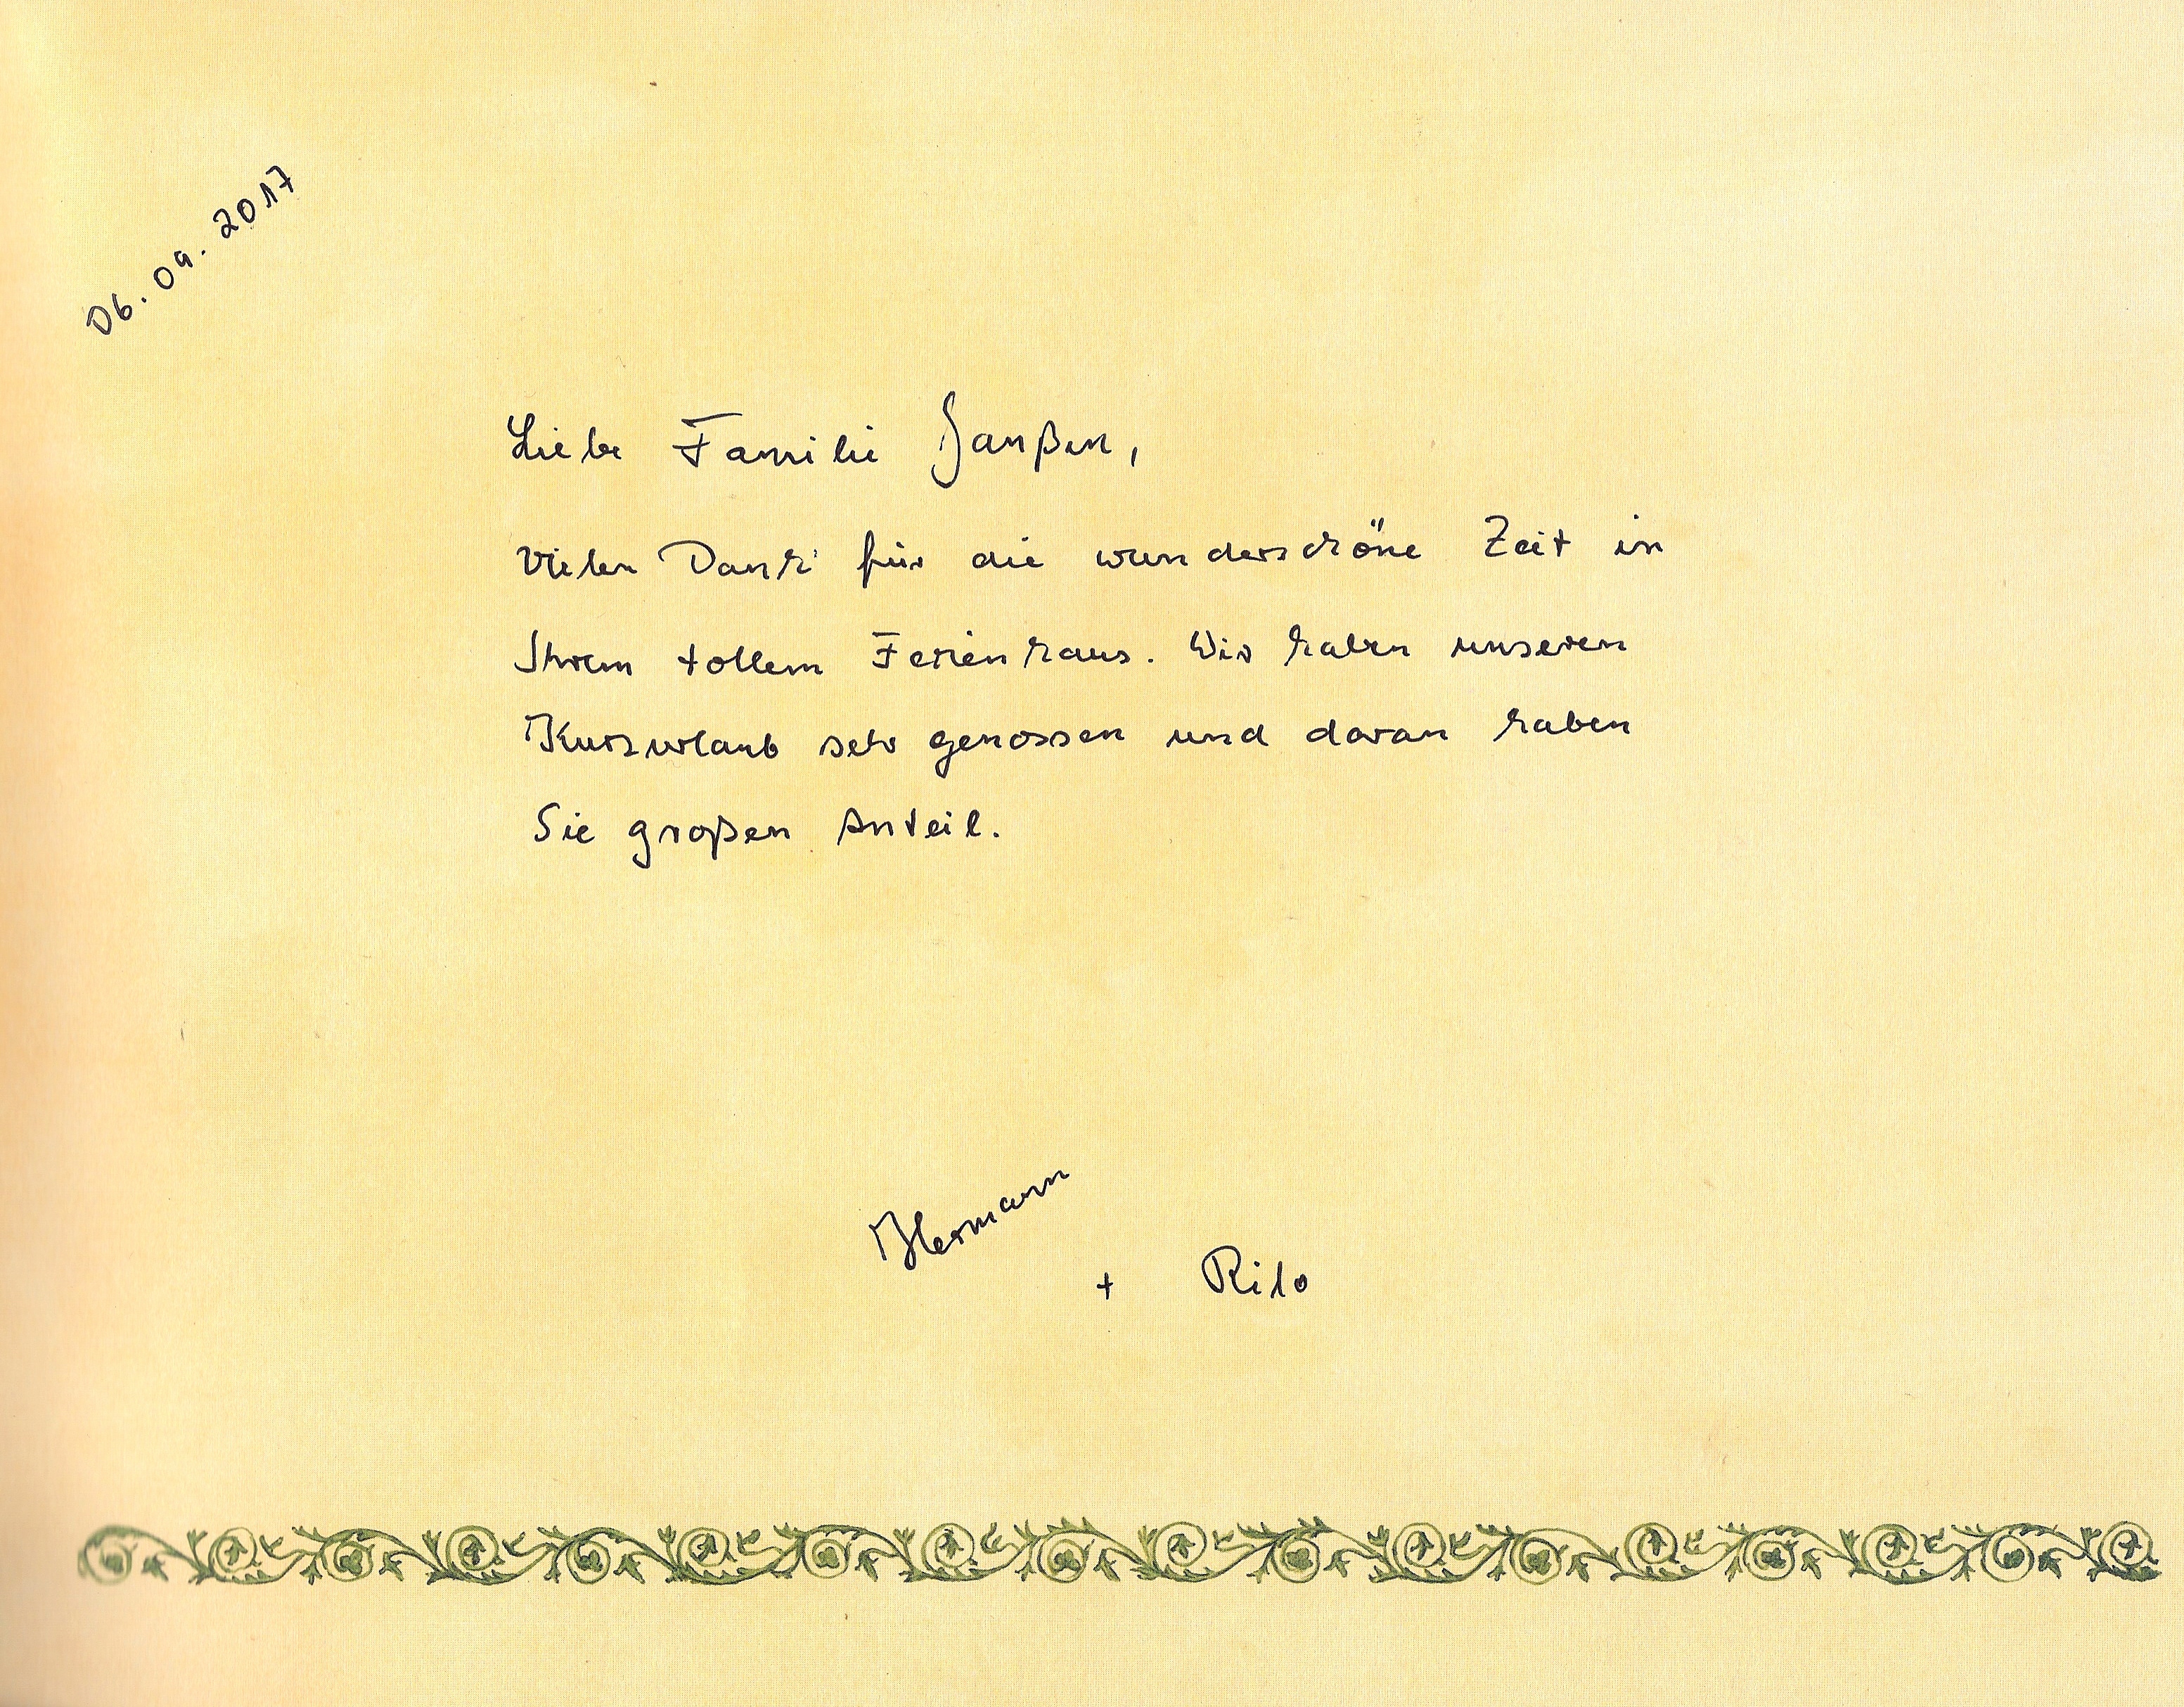 06.09.2017
Liebe Familie Janßen,
vielen Dank für die wunderschöne Zeit in
Ihrem tollem Ferienhaus. Wir haben unseren
Kurzurlaub sehr genossen und daran haben
Sie großen Anteil.
Hermann
+ Rilo